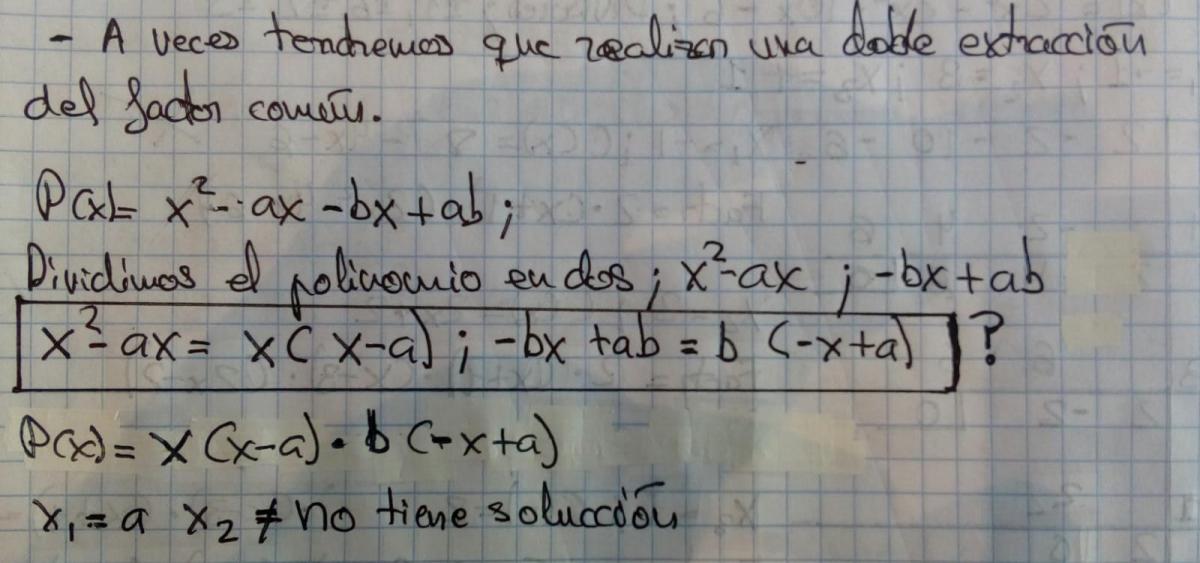 - A veces tendremos que realizar una doble extracción
del factor común.
P(x)= x²- ax -bx+ab;
Dividimos el polinomio en dos; x²-ax ; -bx+ab
x²- ax = x( x-a) ; -bx +ab = b (-x+a) ?
P(x)= x (x-a) · b (-x+a)
x₁ = a x₂ ≠ no tiene solucción